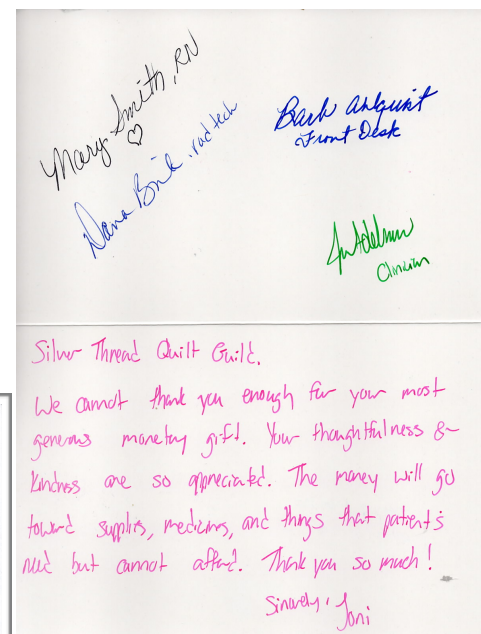 Mary Smith, RN
Dana , rad tech
Barb Ahlquist
Front Desk
Clinician
Silver Thread Quilt Guild.
We cannot thank you enough for your most
generous monetary gift. Your thoughtfulness &
kindness are so appreciated. The money will go
toward supplies, medicines, and things that patient's
need but cannot afford. Thank you so much!
Sincerely,
Joni